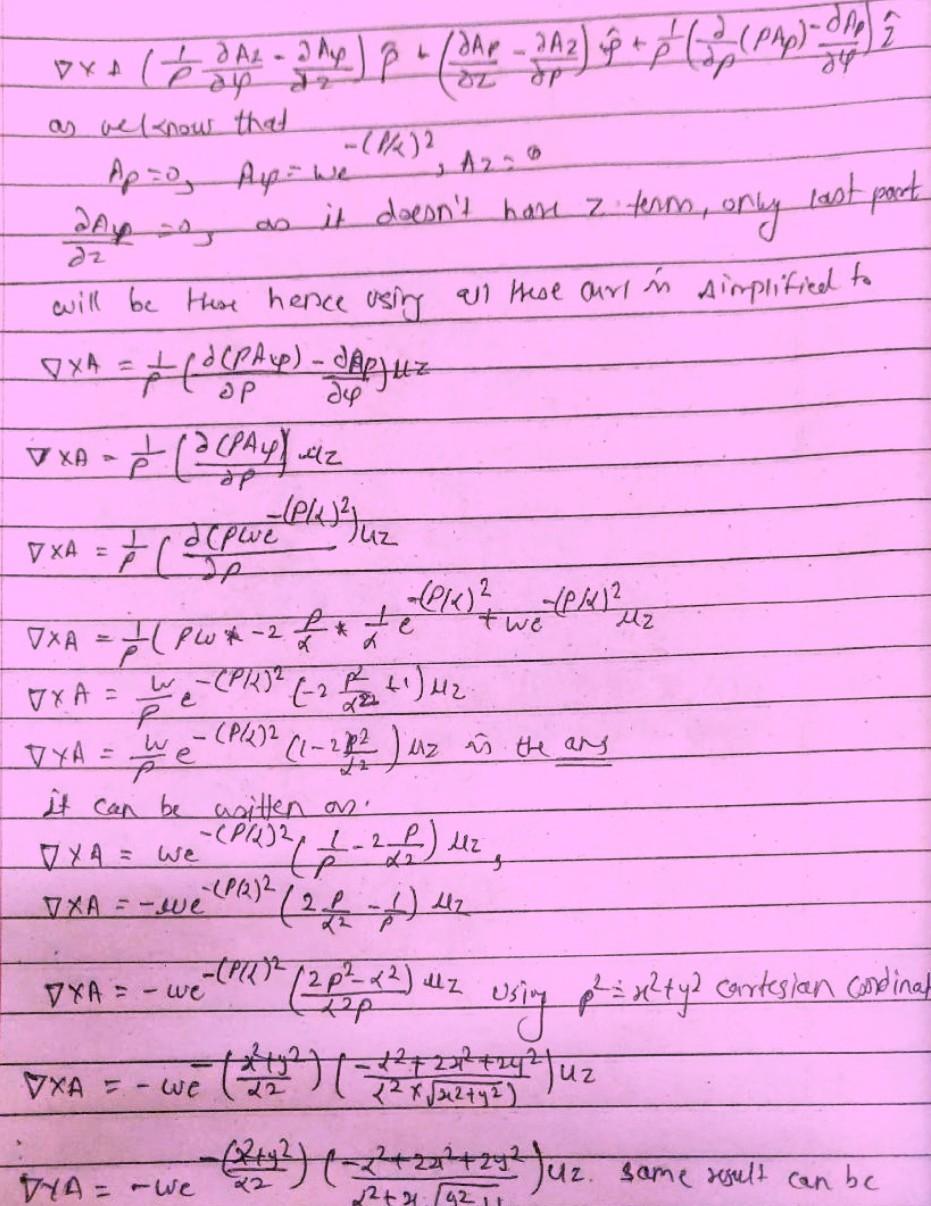 ∇×A (1/ρ ∂Az/∂φ - ∂Aφ/∂z) ρ̂ + (∂Aρ/∂z - ∂Az/∂ρ) φ̂ + 1/ρ (∂/∂ρ (ρAρ) - ∂Aρ/∂φ) ẑ
as we know that
Aρ=0, Aφ = we^-(ρ/α)2, Az=0
∂Aφ/∂z =0, as it doesn't have z term, only last part
will be there hence using all these curl is simplified to
∇×A = 1/ρ (∂(ρAφ)/∂ρ - ∂Aρ/∂φ) uz
∇×A = 1/ρ (∂(ρAφ)/∂ρ) uz
∇×A = 1/ρ (∂(ρwe^-(ρ/α)2)/∂ρ) uz
∇×A = 1/ρ (ρw * -2 ρ/α * 1/α e^-(ρ/α)2 + we^-(ρ/α)2 uz
∇×A = w/ρ e^-(ρ/α)2 (-2 ρ2/α2 +1) uz
∇×A = w/ρ e^-(ρ/α)2 (1-2ρ2/α2) uz is the ans
it can be written as.
∇×A = we^-(ρ/α)2 (1/ρ - 2 ρ/α2) uz,
∇×A = -we^-(ρ/α)2 (2 ρ/α2 - 1/ρ) uz
∇×A = -we^-(ρ/α)2 (2ρ2-α2/α2ρ) uz using ρ2 = x2+y2 cartesian coordinat
∇×A = -we^-(x2+y2/α2) (-α2+2x2+2y2/α2×√x2+y2) uz
∇×A = -we^-(x2+y2/α2) (-α2+2x2+2y2/α2+x √y2) uz. same result can be